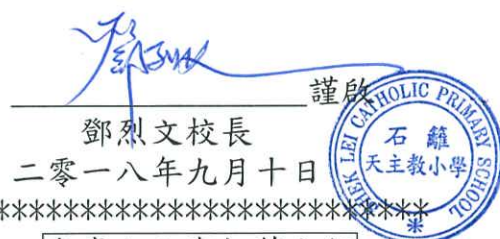 謹啟
鄧烈文校長
二零一八年九月十日
SHEK LEI CATHOLIC PRIMARY SCHOOL
石籬
天主教小學
************************